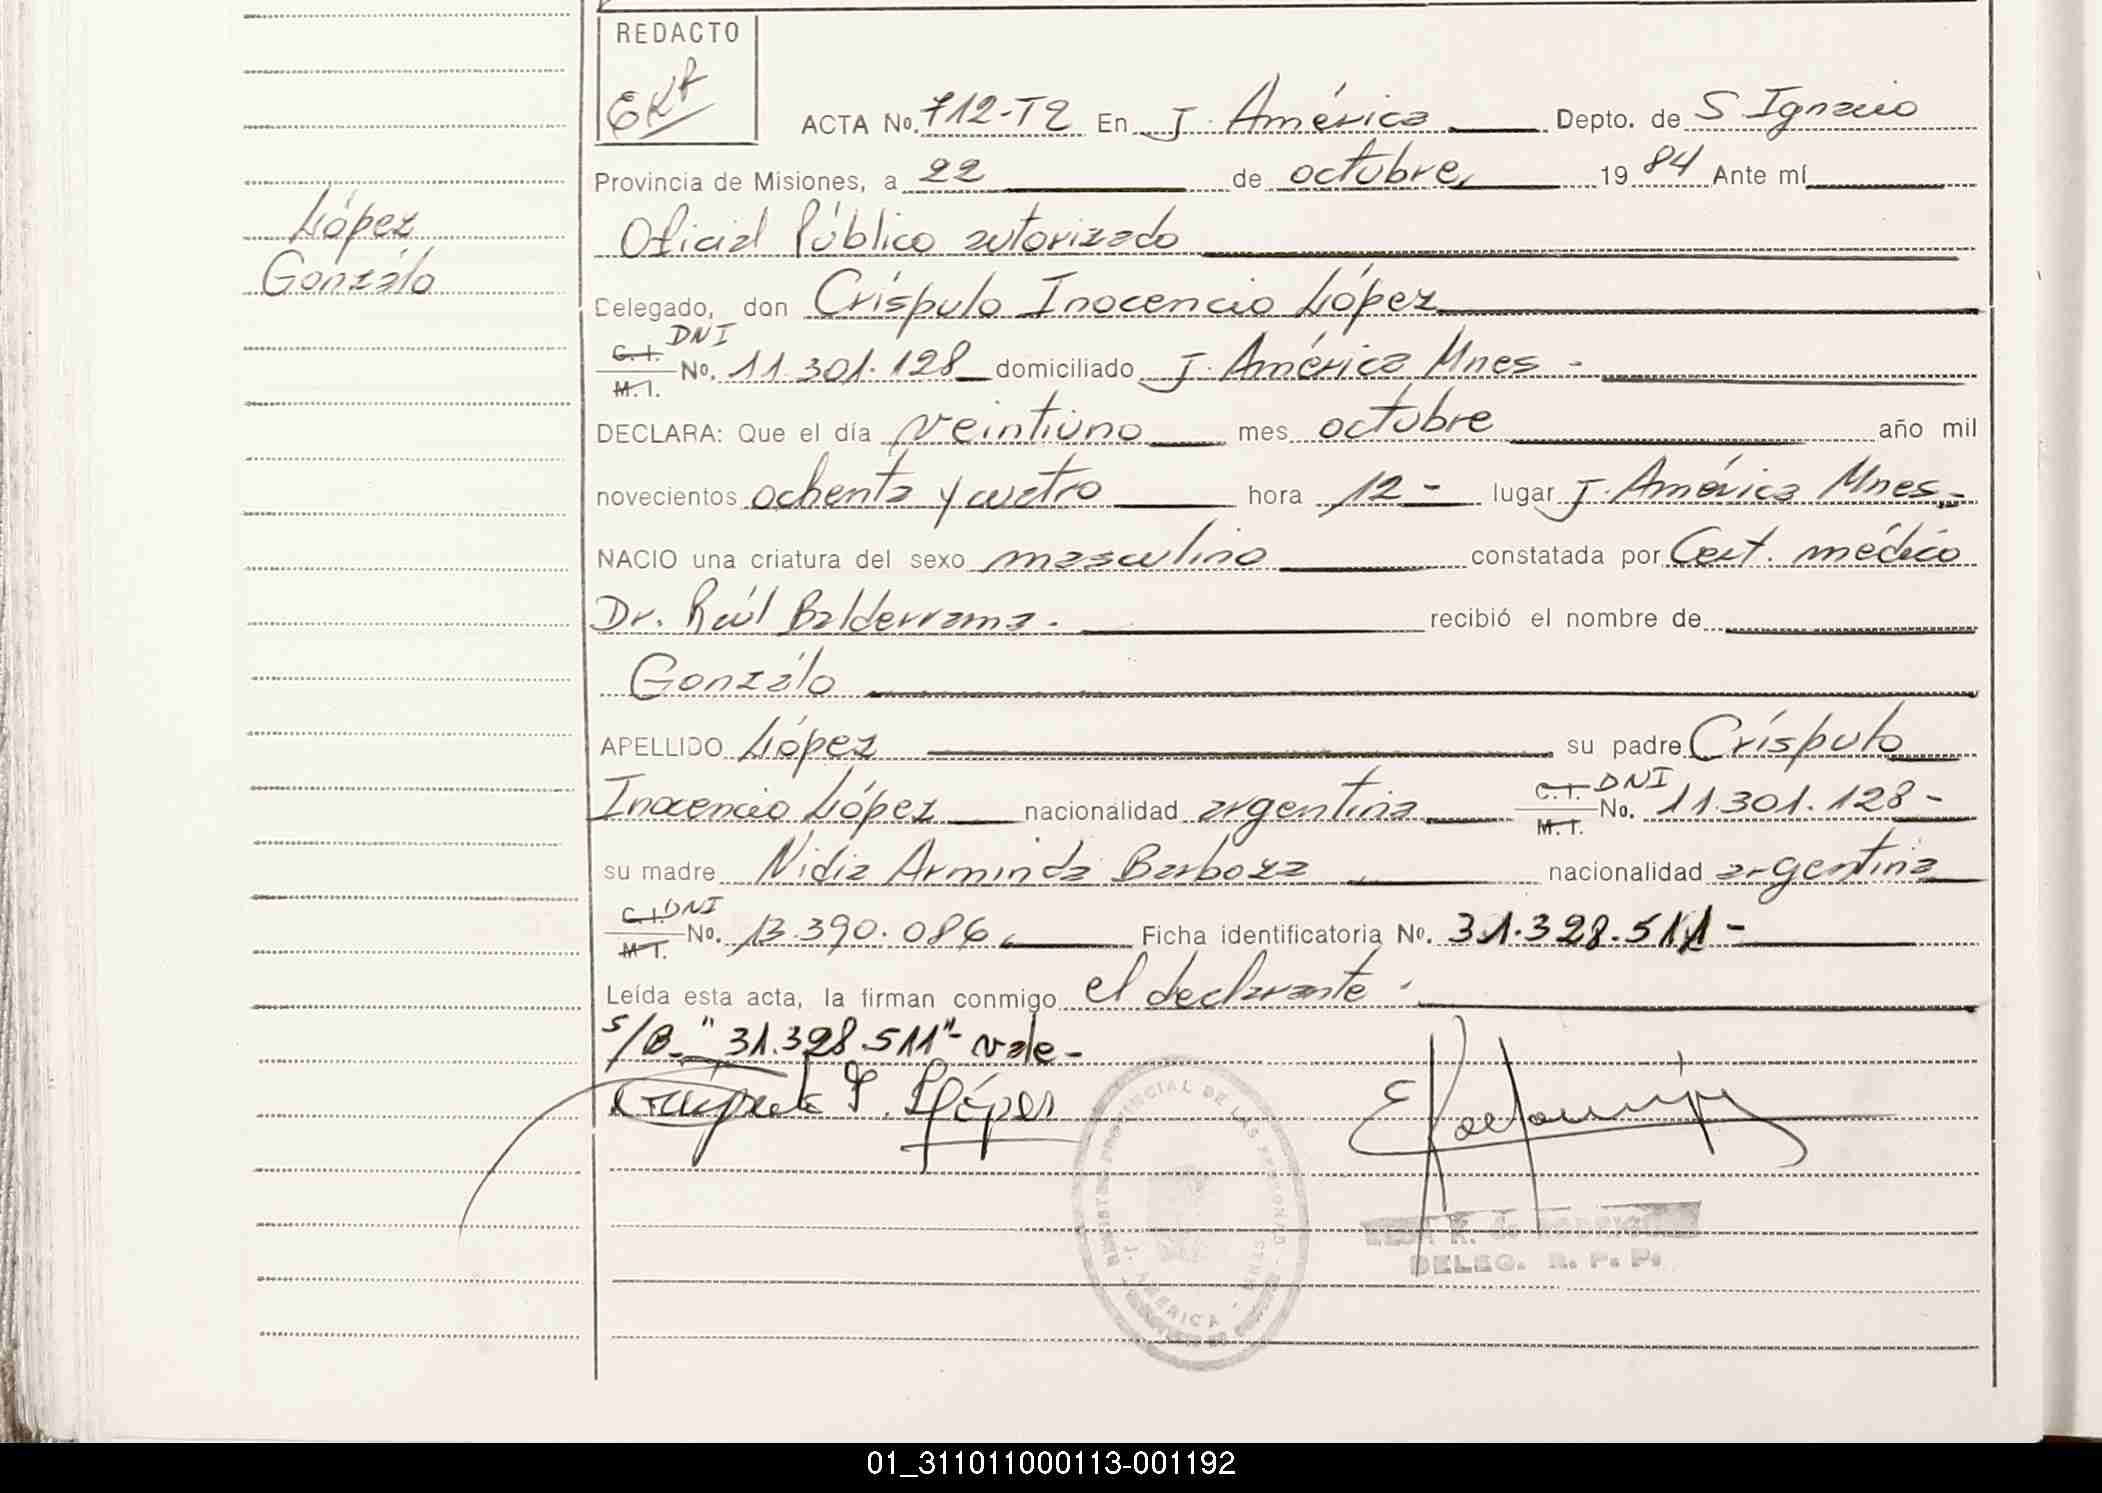 REDACTO
EKR
ACTA No. 712-T2 En J. América Depto. de S. Ignacio
Provincia de Misiones, a 22 de octubre, 19 84 Ante mí
Oficial Público autorizado
López
Gonzálo
Delegado, don Críspulo Inocencio López
C.I. DNI
M.I. No. 11.301.128 domiciliado J. América Mnes -
DECLARA: Que el día veintiuno mes octubre año mil
novecientos ochenta y cuatro hora 12 - lugar J. América Mnes.
NACIO una criatura del sexo masculino constatada por Cert. médico
Dr. Raúl Balderrama. recibió el nombre de
Gonzálo
APELLIDO López su padre Críspulo
Inocencio López nacionalidad argentina C.I. DNI M.I. No. 11.301.128 -
su madre Nidia Arminda Barboza nacionalidad argentina
C.I. DNI
M.I. No. 13.390.086 Ficha identificatoria No. 31.328.511 -
Leída esta acta, la firman conmigo el declarante.
S/B. "31.328.511" - vale -
I. López
REGISTRO PROVINCIAL DE LAS PERSONAS
J. AMERICA - MNES
K. de
DELEG. R. P. P.
01_311011000113-001192